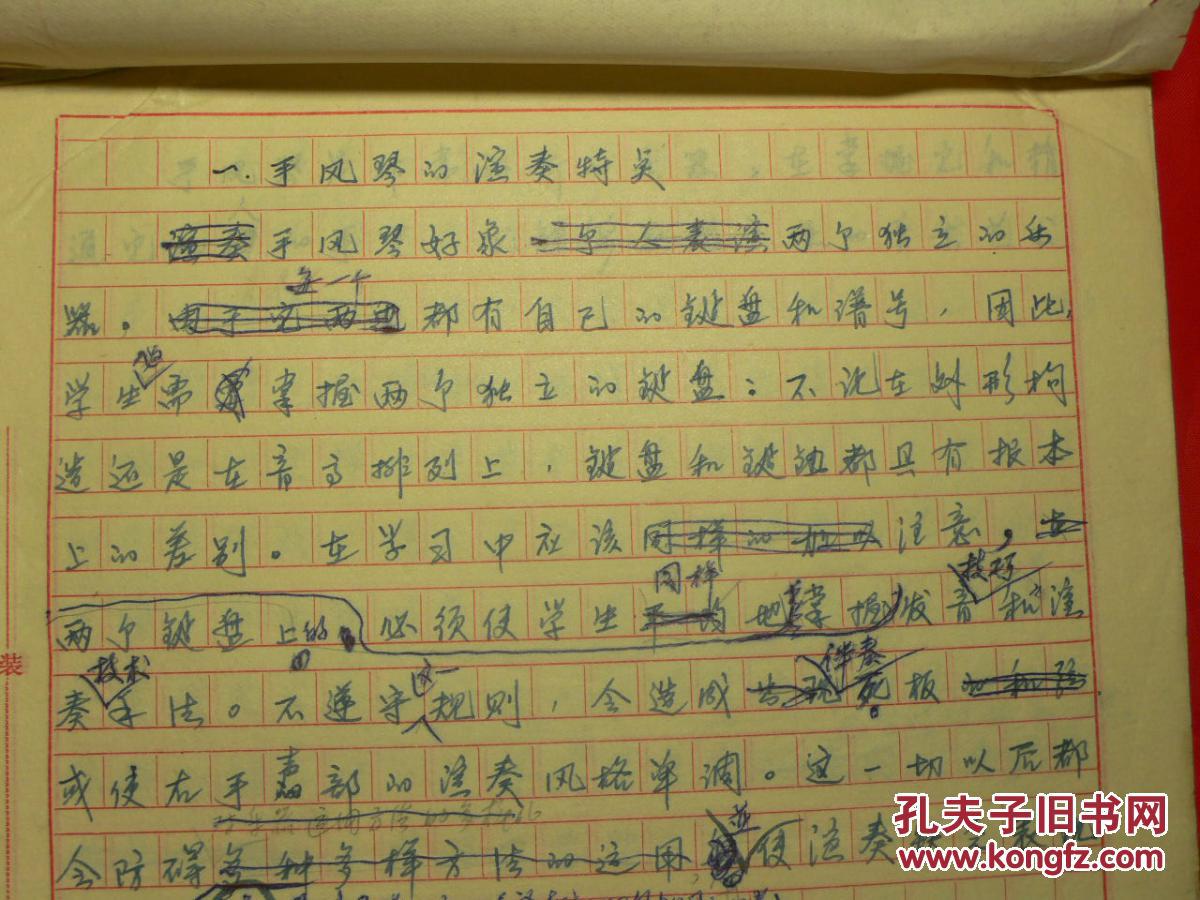 一.手风琴的演奏特点
演奏手风琴好象一个人表演两个独立的乐
每一个
器。由于它两边都有自己的键盘和谱号，因此，
学生需要掌握两个独立的键盘：不论在外形构
造还是在音高排列上，键盘和键钮都具有根本
上的差别。在学习中应该同样的加以注意，
同样 技巧
两个键盘上的 必须使学生平均地掌握发音和演
技术 这一 伴奏
奏手法。不遵守规则，会造成 死板
或使右手声部的演奏风格单调。这一切以后都
会防碍多种多样方法的运用，使演奏
装
孔夫子旧书网
www.kongfz.com